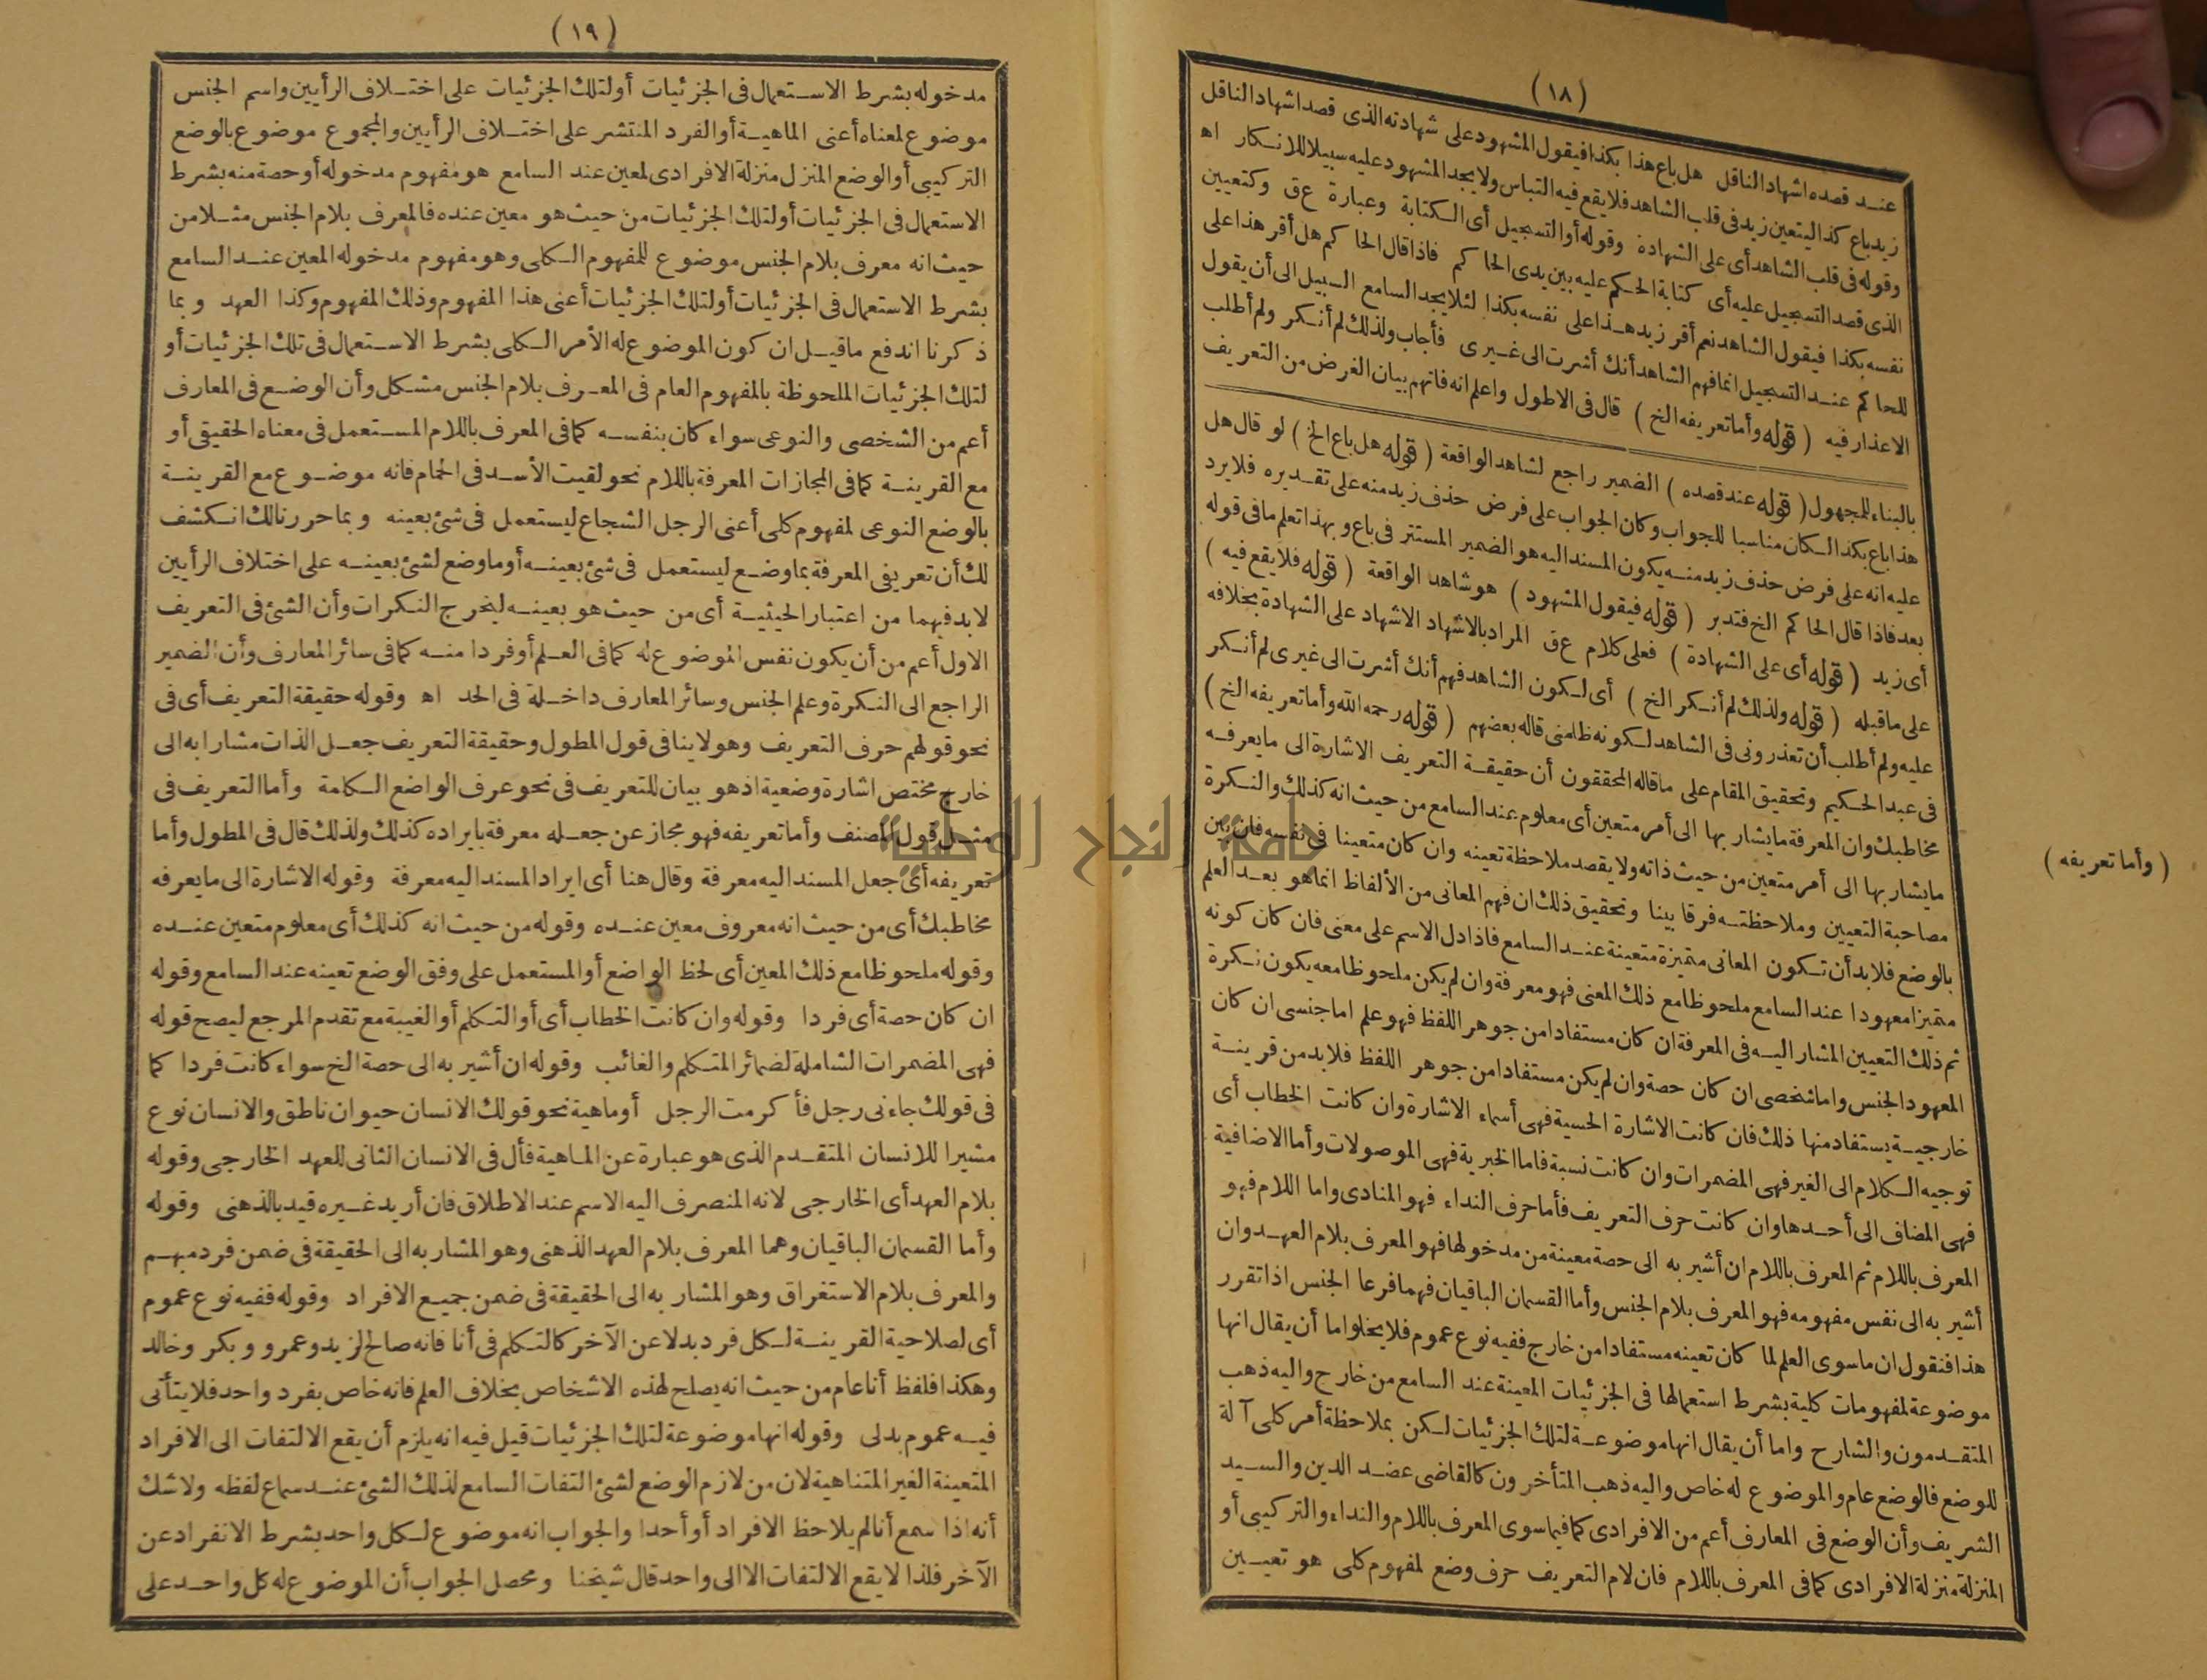 (١٨)
عند قصده اشهاد الناقل هل باع هذا بكذا فيقول المشهود على شهادته الذى قصد اشهاد الناقل
زيد باع كذا ليتعين زيد فى قلب الشاهد فلا يقع فيه التباس ولا يجد المشهود عليه سبيلا للانكار اه
وقوله فى قلب الشاهد أى على الشهادة وقوله أو التسجيل أى الكتابة وعبارة ع ق وكتعيين
الذى قصد التسجيل عليه أى كتابة الحكم عليه بين يدى الحاكم فاذا قال الحاكم هل أقر هذا على
نفسه بكذا فيقول الشاهد نعم أقر زيد هذا على نفسه بكذا لئلا يجد السامع السبيل الى أن يقول
للحاكم عند التسجيل انما فهم الشاهد أنك أشرت الى غيرى فأجاب ولذلك لم أنكر ولم أطلب
الاعذار فيه (قوله وأما تعريفه الخ) قال فى الاطول واعلم انه فاتهم بيان الغرض من التعريف
بالبناء للمجهول (قوله عند قصده) الضمير راجع لشاهد الواقعة (قوله هل باع الخ) لو قال هل
هذا باع بكذا لكان مناسبا للجواب وكان الجواب على فرض حذف زيد منه على تقديره فلا يرد
عليه انه على فرض حذف زيد منه يكون المسند اليه هو الضمير المستتر فى باع وبهذا تعلم ما فى قوله
بعد فاذا قال الحاكم الخ فتدبر (قوله فيقول المشهود) هو شاهد الواقعة (قوله فلا يقع فيه)
أى زيد (قوله أى على الشهادة) فعلى كلام ع ق المراد بالاشهاد الاشهاد على الشهادة بخلافه
على ما قبله (قوله ولذلك لم أنكر الخ) أى لكون الشاهد فهم أنك أشرت الى غيرى لم أنكر
عليه ولم أطلب أن تعذرونى فى الشاهد لكونه ظامنى قاله بعضهم (قوله رحمه الله وأما تعريفه الخ)
فى عبد الحكيم وتحقيق المقام على ما قاله المحققون أن حقيقة التعريف الاشارة الى ما يعرفه
مخاطبك وان المعرفة ما يشار بها الى أمر متعين أى معلوم عند السامع من حيث انه كذلك والنكرة
ما يشار بها الى أمر متعين من حيث ذاته ولا يقصد ملاحظة تعينه وان كان متعينا فى نفسه فان بين
مصاحبة التعيين وملاحظته فرقا بينا وتحقيق ذلك ان فهم المعانى من الألفاظ انما هو بعد العلم
بالوضع فلا بد أن تكون المعانى متميزة متعينة عند السامع فاذا دل الاسم على معنى فان كان كونه
متميزا معهودا عند السامع ملحوظا مع ذلك المعنى فهو معرفة وان لم يكن ملحوظا معه يكون نكرة
ثم ذلك التعيين المشار اليه فى المعرفة ان كان مستفادا من جوهر اللفظ فهو علم اما جنسى ان كان
المعهود الجنس واما شخصى ان كان حصة وان لم يكن مستفادا من جوهر اللفظ فلا بد من قرينة
خارجية يستفاد منها ذلك فان كانت الاشارة الحسية فهى أسماء الاشارة وان كانت الخطاب أى
توجيه الكلام الى الغير فهى المضمرات وان كانت نسبة فاما الخبرية فهى الموصولات وأما الاضافية
فهى المضاف الى أحدها وان كانت حرف التعريف فأما حرف النداء فهو المنادى واما اللام فهو
المعرف باللام ثم المعرف باللام ان أشير به الى حصة معينة من مدخولها فهو المعرف بلام العهد وان
أشير به الى نفس مفهومه فهو المعرف بلام الجنس وأما القسمان الباقيان فهما فرعا الجنس اذا تقرر
هذا فنقول ان ما سوى العلم لما كان تعينه مستفادا من خارج ففيه نوع عموم فلا يخلو اما أن يقال انها
موضوعة لمفهومات كلية بشرط استعمالها فى الجزئيات المعينة عند السامع من خارج واليه ذهب
المتقدمون والشارح واما أن يقال انها موضوعة لتلك الجزئيات لكن بملاحظة أمر كلى آلة
للوضع فالوضع عام والموضوع له خاص واليه ذهب المتأخرون كالقاضى عضد الدين والسيد
الشريف وأن الوضع فى المعارف أعم من الافرادى كما فيما سوى المعرف باللام والنداء والتركيبى أو
المنزلة منزلة الافرادى كما فى المعرف باللام فان لام التعريف حرف وضع لمفهوم كلى هو تعيين
(وأما تعريفه)
(١٩)
مدخوله بشرط الاستعمال فى الجزئيات أو لتلك الجزئيات على اختلاف الرأيين واسم الجنس
موضوع لمعناه أعنى الماهية أو الفرد المنتشر على اختلاف الرأيين والمجموع موضوع بالوضع
التركيبى أو الوضع المنزل منزلة الافرادى لمعين عند السامع هو مفهوم مدخوله أو حصة منه بشرط
الاستعمال فى الجزئيات أو لتلك الجزئيات من حيث هو معين عنده فالمعرف بلام الجنس مثلا من
حيث انه معرف بلام الجنس موضوع للمفهوم الكلى وهو مفهوم مدخوله المعين عند السامع
بشرط الاستعمال فى الجزئيات أو لتلك الجزئيات أعنى هذا المفهوم وذلك المفهوم وكذا العهد وبما
ذكرنا اندفع ما قيل ان كون الموضوع له الأمر الكلى بشرط الاستعمال فى تلك الجزئيات أو
لتلك الجزئيات الملحوظة بالمفهوم العام فى المعرف بلام الجنس مشكل وأن الوضع فى المعارف
أعم من الشخصى والنوعى سواء كان بنفسه كما فى المعرف باللام المستعمل فى معناه الحقيقى أو
مع القرينة كما فى المجازات المعرفة باللام نحو لقيت الأسد فى الحمام فانه موضوع مع القرينة
بالوضع النوعى لمفهوم كلى أعنى الرجل الشجاع ليستعمل فى شئ بعينه وبما حررنا لك انكشف
لك أن تعريفى المعرفة بما وضع ليستعمل فى شئ بعينه أو ما وضع لشئ بعينه على اختلاف الرأيين
لا بد فيهما من اعتبار الحيثية أى من حيث هو بعينه ليخرج النكرات وأن الشئ فى التعريف
الاول أعم من أن يكون نفس الموضوع له كما فى العلم أو فردا منه كما فى سائر المعارف وأن الضمير
الراجع الى النكرة وعلم الجنس وسائر المعارف داخلة فى الحد اه وقوله حقيقة التعريف أى فى
نحو قولهم حرف التعريف وهو لا ينافى قول المطول وحقيقة التعريف جعل الذات مشارا به الى
خارج مختص اشارة وضعية اذ هو بيان للتعريف فى نحو عرف الواضع الكلمة وأما التعريف فى
مثل قول المصنف وأما تعريفه فهو مجاز عن جعله معرفة بايراده كذلك ولذلك قال فى المطول وأما
تعريفه أى جعل المسند اليه معرفة وقال هنا أى ايراد المسند اليه معرفة وقوله الاشارة الى ما يعرفه
مخاطبك أى من حيث انه معروف معين عنده وقوله من حيث انه كذلك أى معلوم متعين عنده
وقوله ملحوظا مع ذلك المعين أى لحظ الواضع أو المستعمل على وفق الوضع تعينه عند السامع وقوله
ان كان حصة أى فردا وقوله وان كانت الخطاب أى أو التكلم أو الغيبة مع تقدم المرجع ليصح قوله
فهى المضمرات الشاملة لضمائر المتكلم والغائب وقوله ان أشير به الى حصة الخ سواء كانت فردا كما
فى قولك جاءنى رجل فأكرمت الرجل أو ماهية نحو قولك الانسان حيوان ناطق والانسان نوع
مشيرا للانسان المتقدم الذى هو عبارة عن الماهية فأل فى الانسان الثانى للعهد الخارجى وقوله
بلام العهد أى الخارجى لانه المنصرف اليه الاسم عند الاطلاق فان أريد غيره قيد بالذهنى وقوله
وأما القسمان الباقيان وهما المعرف بلام العهد الذهنى وهو المشار به الى الحقيقة فى ضمن فرد مبهم
والمعرف بلام الاستغراق وهو المشار به الى الحقيقة فى ضمن جميع الافراد وقوله ففيه نوع عموم
أى لصلاحية القرينة لكل فرد بدلا عن الآخر كالتكلم فى أنا فانه صالح لزيد وعمرو وبكر وخالد
وهكذا فلفظ أنا عام من حيث انه يصلح لهذه الاشخاص بخلاف العلم فانه خاص بفرد واحد فلا يتأتى
فيه عموم بدلى وقوله انها موضوعة لتلك الجزئيات قيل فيه انه يلزم أن يقع الالتفات الى الافراد
المتعينة الغير المتناهية لان من لازم الوضع لشئ التفات السامع لذلك الشئ عند سماع لفظه ولا شك
أنه اذا سمع أنا لم يلاحظ الافراد أو أحدا والجواب انه موضوع لكل واحد بشرط الانفراد عن
الآخر فلذا لا يقع الالتفات الا الى واحد قال شيخنا ومحصل الجواب أن الموضوع له كل واحد على
جامعة النجاح الوطنية